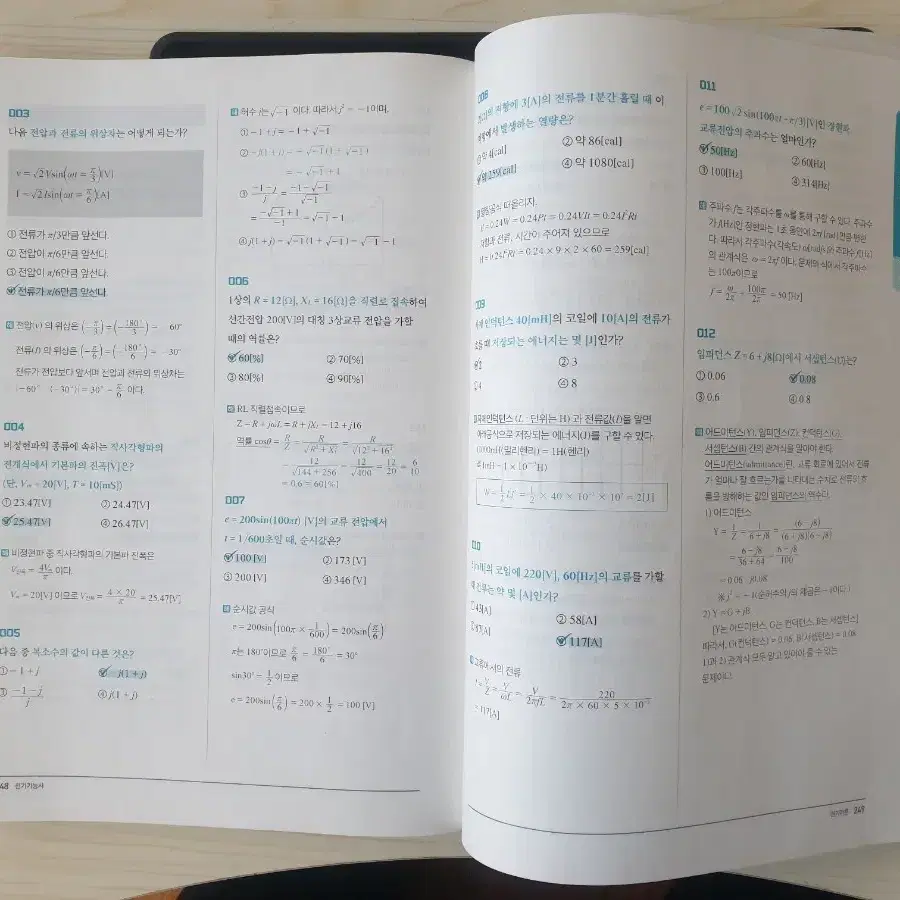 003
다음 전압과 전류의 위상차는 어떻게 되는가?
v = √2 Vsin(ωt = π/3)[V]
I = √2 Isin(ωt = π/6)[A]
① 전류가 π/3만큼 앞선다.
② 전압이 π/6만큼 앞선다.
③ 전압이 π/6만큼 앞선다.
④ 전류가 π/6만큼 앞선다
전압(v) 의 위상은 (-π/3) = (-180°/3) = -60°
전류(I) 의 위상은 (-π/6) = (-180°/6) = -30°
전류가 전압보다 앞서며 전압과 전류의 위상차는
π/6 이다.
004
비정현파의 종류에 속하는 직사각형파의
전개식에서 기본파의 진폭[V]은?
(단, Vm = 20[V], T = 10[mS])
① 23.47[V] ② 24.47[V]
③ 25.47[V] ④ 26.47[V]
비정현파 중 직사각형파의 기본파 진폭은
이다.
Vm = 20[V] 이므로 = 4 × 20/π = 25.47[V]
005
다음 중 복소수의 값이 다른 것은?
① -1 + j ② j(1 + j)
③ (-1 - j)/j ④ j(1 + j)
48 전기기능사
허수 j는 √-1 이다. 따라서 j² = -1이며,
① -1 + j = -1 + √-1
② -j(1 + j) = -√-1(1 + √-1)
= -√-1 + 1
③ (-1-j)/j = (-1-√-1)/√-1
= (-√-1 + 1)/-1 = √-1 - 1
④ j(1 + j) = √-1(1 + √-1) = √-1 - 1
006
1상의 R = 12[Ω], XL = 16[Ω]을 직렬로 접속하여
선간전압 200[V]의 대칭 3상교류 전압을 가할
때의 역률은?
① 60[%] ② 70[%]
③ 80[%] ④ 90[%]
RL 직렬접속이므로
Z = R + jωL = R + jXL = 12 + j16
역률 cosθ = R/Z = R/√(R² + XL²) = R/√(12² + 16²)
= 12/√(144 + 256) = 12/√400 = 12/20 = 6/10
= 0.6 = 60[%]
007
e = 200sin(100πt) [V]의 교류 전압에서
t = 1/600초일 때, 순시값은?
① 100 [V] ② 173 [V]
③ 200 [V] ④ 346 [V]
순시값 공식
e = 200sin(100π × 1/600) = 200sin(π/6)
π는 180°이므로 π/6 = 180°/6 = 30°
sin30° = 1/2 이므로
e = 200sin(π/6) = 200 × 1/2 = 100 [V]
008
저항에 3[A]의 전류를 1분간 흘릴 때 이
저항에서 발생하는 열량은?
② 약 86[cal]
약 259[cal] ④ 약 1080[cal]
공식 떠올리자.
H = 0.24W = 0.24Pt = 0.24VIt = 0.24I²Rt
저항과 전류, 시간이 주어져 있으므로
H = 0.24I²Rt = 0.24 × 9 × 2 × 60 = 259[cal]
009
자체 인덕턴스 40[mH]의 코일에 10[A]의 전류가
흐를 때 저장되는 에너지는 몇 [J]인가?
② 3
④ 8
자체인덕턴스 (L : 단위는 H) 과 전류값(I)을 알면
공식으로 저장되는 에너지(J)를 구할 수 있다.
1000mH(밀리헨리) = 1H(헨리)
W = 1/2 LI² = 1/2 × 40 × 10⁻³ × 10² = 2[J]
010
[mH]의 코일에 220[V], 60[Hz]의 교류를 가할
때 전류는 약 몇 [A]인가?
① 43[A] ② 58[A]
③ 87[A] ④ 117[A]
교류에서의 전류
I = V/Z = V/ωL = V/2πfL = 220/(2π × 60 × 5 × 10⁻³)
= 117[A]
011
e = 100√2 sin(100πt - π/3)[V]인 정현파
교류전압의 주파수는 얼마인가?
① 50[Hz] ② 60[Hz]
③ 100[Hz] ④ 314[Hz]
주파수 f는 각주파수를 ω를 통해 구할 수 있다. 주파수
의 관계식은 ω = 2πf 이다. 문제의 식에서 각주파수
는 100π이므로
f = ω/2π = 100π/2π = 50 [Hz]
012
임피던스 Z = 6 + j8[Ω]에서 서셉턴스[℧]는?
① 0.06 ② 0.08
③ 0.6 ④ 0.8
어드미턴스(Y), 임피던스(Z), 컨덕턴스(G),
서셉턴스(B) 간의 관계식을 알아야 한다.
어드미턴스(admittance)란, 교류 회로에 있어서 전류
가 얼마나 잘 흐르는가를 나타내는 수치로 전류의 흐
름을 방해하는 값인 임피던스의 역수다.
1) 어드미턴스
Y = 1/Z = 1/(6 + j8) = (6 - j8)/(6 + j8)(6 - j8)
= (6 - j8)/(36 + 64) = (6 - j8)/100
= 0.06 - j0.08
2) Y = G + jB
[Y는 어드미턴스, G는 컨덕턴스, B는 서셉턴스]
따라서, G(컨덕턴스) = 0.06, B(서셉턴스) = 0.08
1)과 2) 관계식 모두 알고 있어야 풀 수 있는
문제이다.
전기이론 249